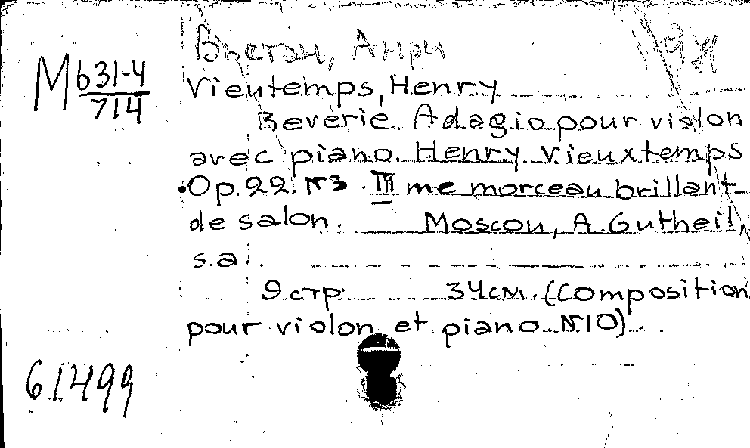 Вьетан, Анри
М 631-4
714
Vieutemps, Henry
Reverie. Adagio pour violon
avec piano. Henry Vieuxtemps
Op. 22. №3. III me morceau brillant
de salon. Moscou, A. Gutheil,
s.a.
9 стр. 34см. (Composition
pour violon et piano №10)
61499